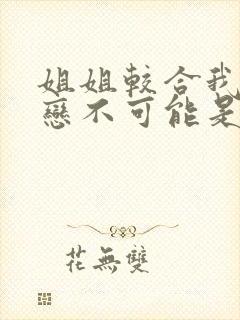 姐姐較合我
戀不可能是
花無雙